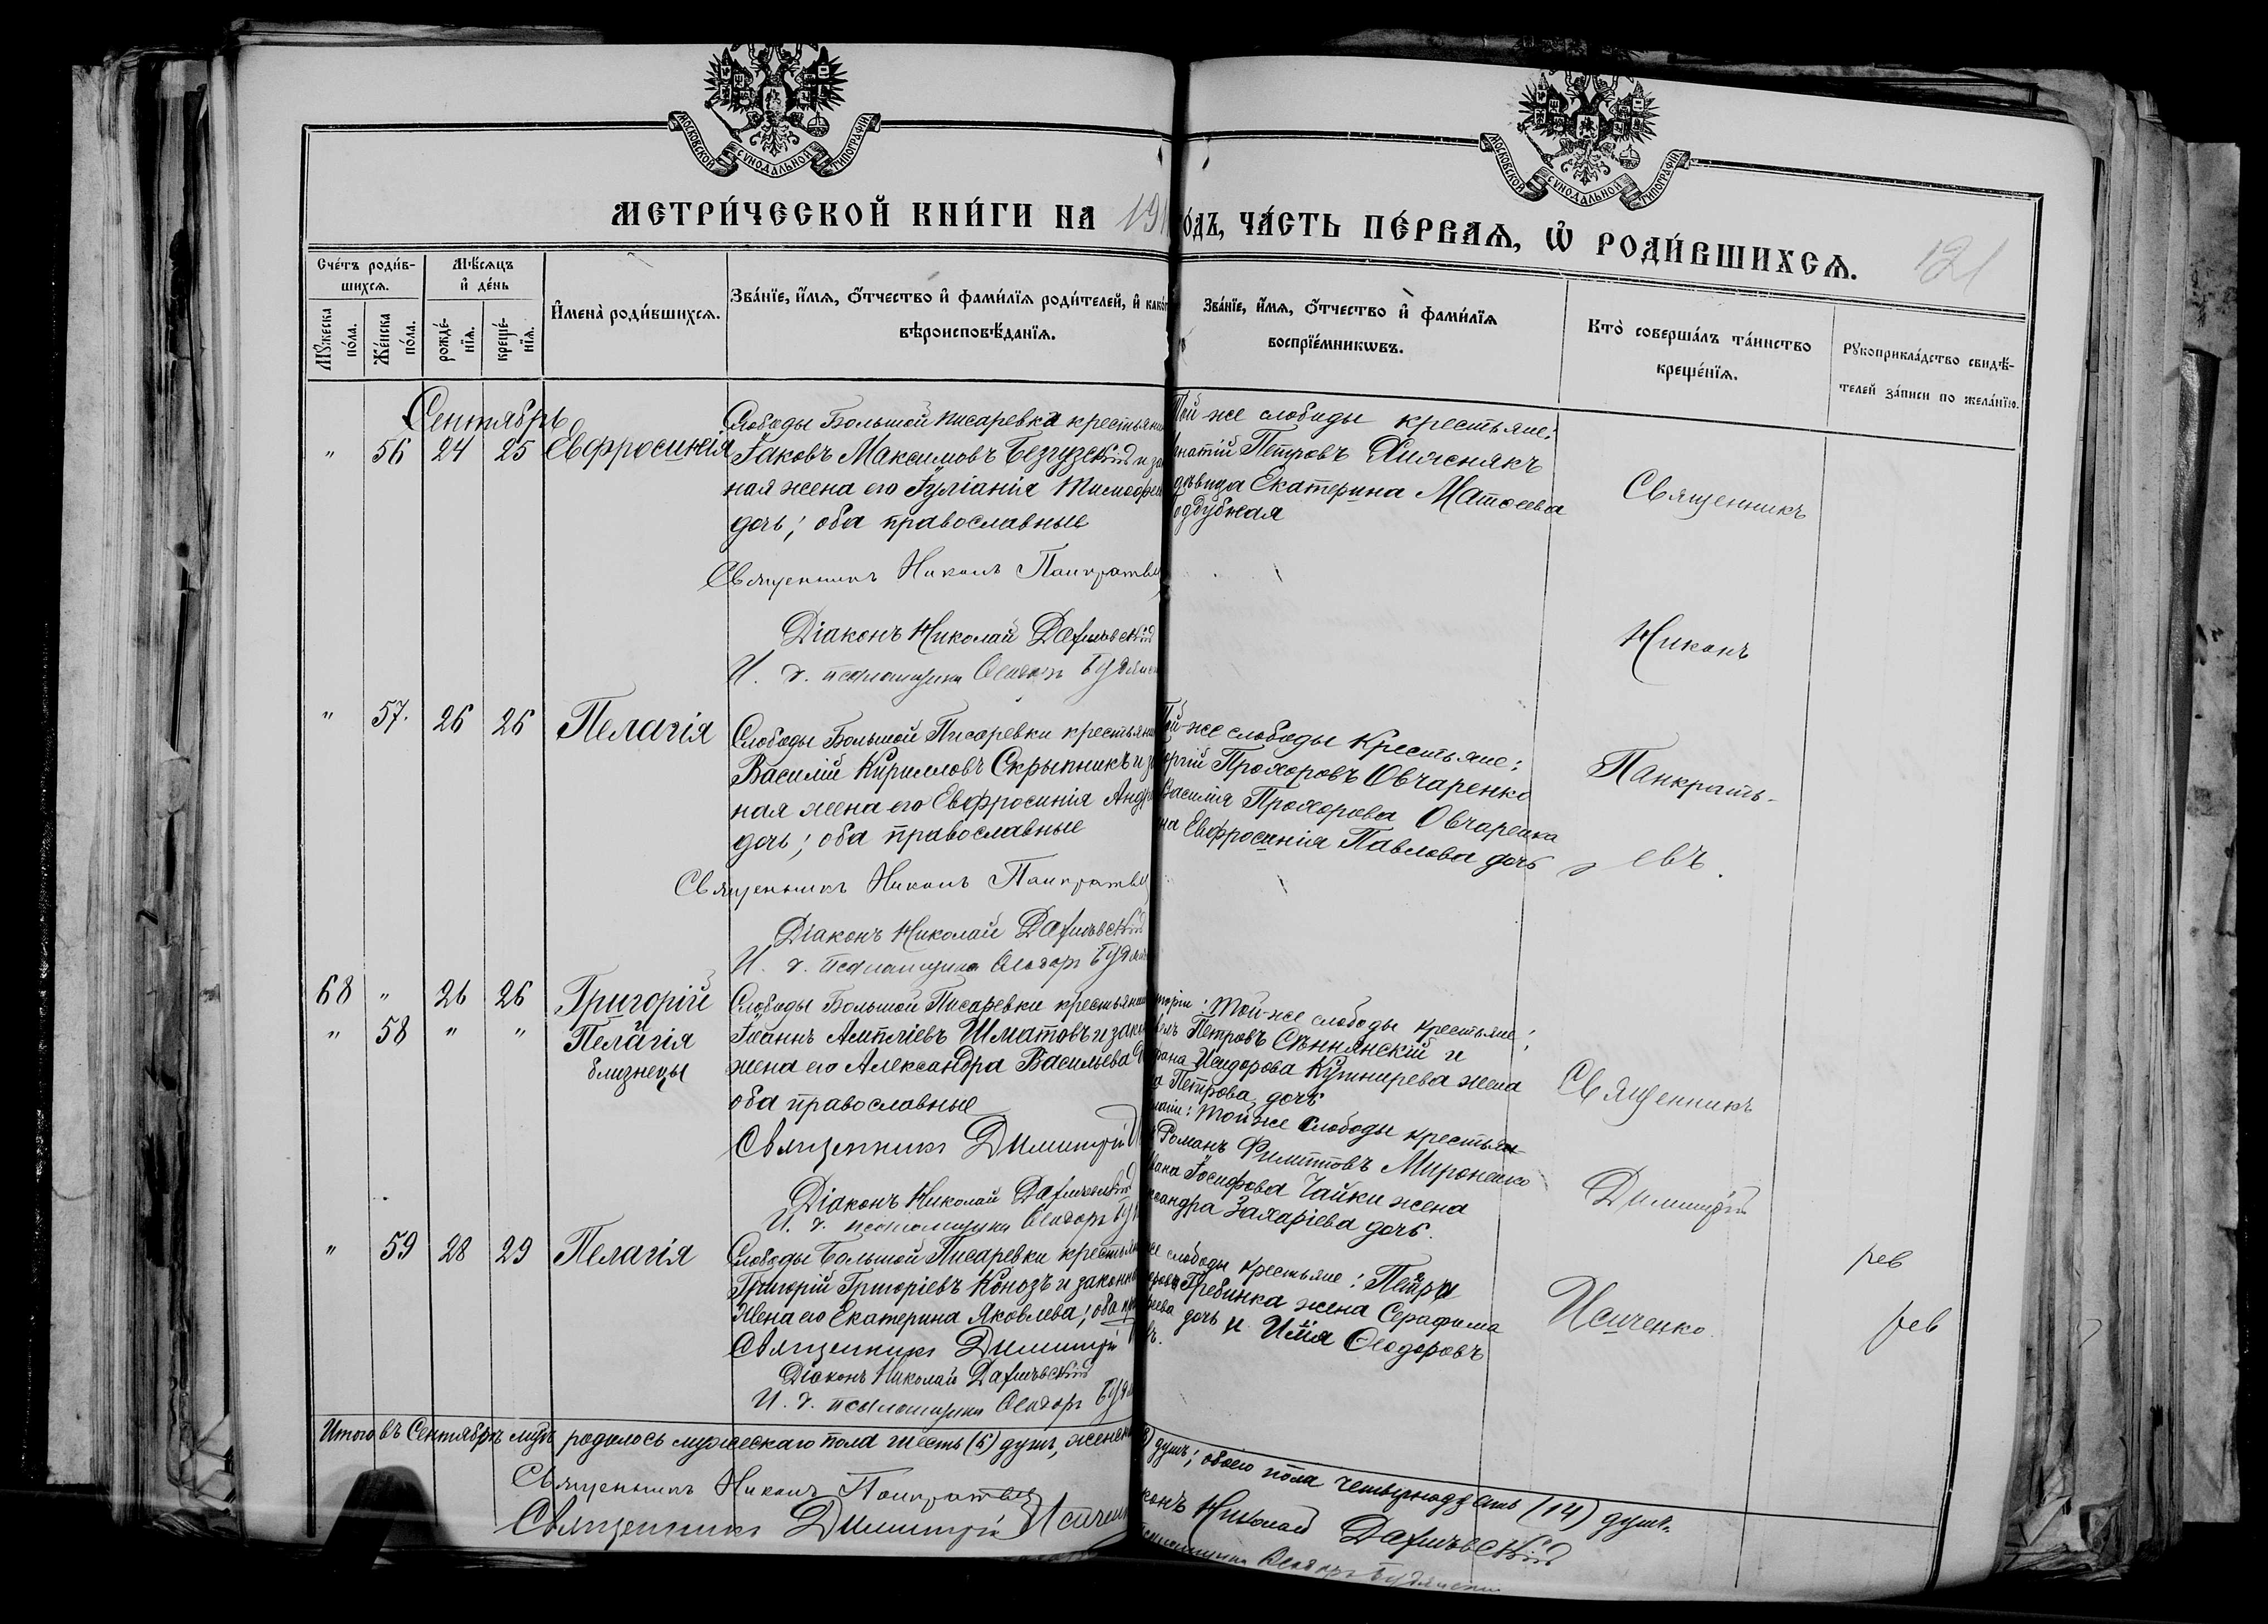 МОСКОВСКОЙ СУНОДАЛЬНОЙ ТИПОГРАФІИ
МОСКОВСКОЙ СУНОДАЛЬНОЙ ТИПОГРАФІИ
МЕТРИ́ЧЕСКОЙ КНИ́ГИ НА 191
о́дъ, ЧА́СТЬ ПЕ́РВАѦ, Ѡ҆ РОДИ́ВШИХСѦ.
121
Сче́тъ роди́вшихсѧ.
Мѹ́жеска по́ла.
Же́нска по́ла.
Мѣ́сѧцъ и҆ де́нь
рожде́нїѧ.
креще́нїѧ.
И҆мена̀ роди́вшихсѧ.
Зва́нїе, и҆́мѧ, ѻ҆́тчество и҆ фами́лїѧ роди́телей, и҆ како́г
вѣроисповѣ́данїѧ.
Зва́нїе, и҆́мѧ, ѻ҆́тчество и҆ фами́лїѧ
воспрїе́мникѡвъ.
Кто̀ соверша́лъ та́инство
креще́нїѧ.
Рꙋкоприкла́дство свидѣ́-
телей за́писи по жела́нїю.
Сентябрь
" 56 24 25 Евфросинія
Слободы Большой Писаревки крестьянин
Іаковъ Максимовъ и за
ная жена его Іуліанія Тимофеев
дочь; оба православные
Священникъ Никонъ Панкратьев
Діаконъ Николай
И. д. псаломщика Ѳеодоръ
Той же слободы крестьяне:
гнатій Петровъ Хижснякъ
дѣвица Екатерина Матѳеева
оддубная
Священникъ
Никонъ
Панкрать-
евъ.
" 57. 26 26 Пелагія
Слободы Большой Писаревки крестьянин
Василій Кирилловъ Скрыпникъ и за
ная жена его Евфросинія Андре
дочь; оба православные
Священникъ Никонъ Панкратьев
Діаконъ Николай
И. д. псаломщика Ѳеодоръ
Той-же слободы крестьяне:
оргій Прохоровъ Овчаренко
Василія Прохорова Овчаренка
на Евфросинія Павлова дочь
68 " 26 26 Григорій
" 58 " " Пелагія
близнецы
Слободы Большой Писаревки крестьянин
Іоаннъ Шматовъ и закон
жена его Александра Васильева
оба православные
Священникъ Димитрій
Діаконъ Николай
И. д. псаломщика Ѳеодоръ
горія: Той-же слободы крестьяне:
Петровъ Сѣннянскій и
Исидорова Кушнирева жена
а Петрова дочь
лагіи: Той же слободы крестьяне
Романъ Филипповъ Мироненко
Іосифова Чайки жена
сандра Захаріева дочь.
Священникъ
Димитрій
Исиченко.
" 59 28 29 Пелагія
Слободы Большой Писаревки крестьян
Григорій Григоріевъ Конозъ и законна
жена его Екатерина Яковлева; оба пр
Священникъ Димитрій
Діаконъ Николай
И. д. псаломщика Ѳеодоръ
же слободы крестьяне: Петра
Гребинка жена Серафима
еева дочь и Илія Ѳеодоровъ
рев
рев
Итого въ Сентябрѣ мцѣ родилось мужескаго пола шесть (6) душъ, женск
) душъ; обоего пола четырнадцать (14) душъ.
Священникъ Никонъ Панкратьев
Священникъ Димитрій Исиченко
конъ Николай
псаломщика Ѳеодоръ